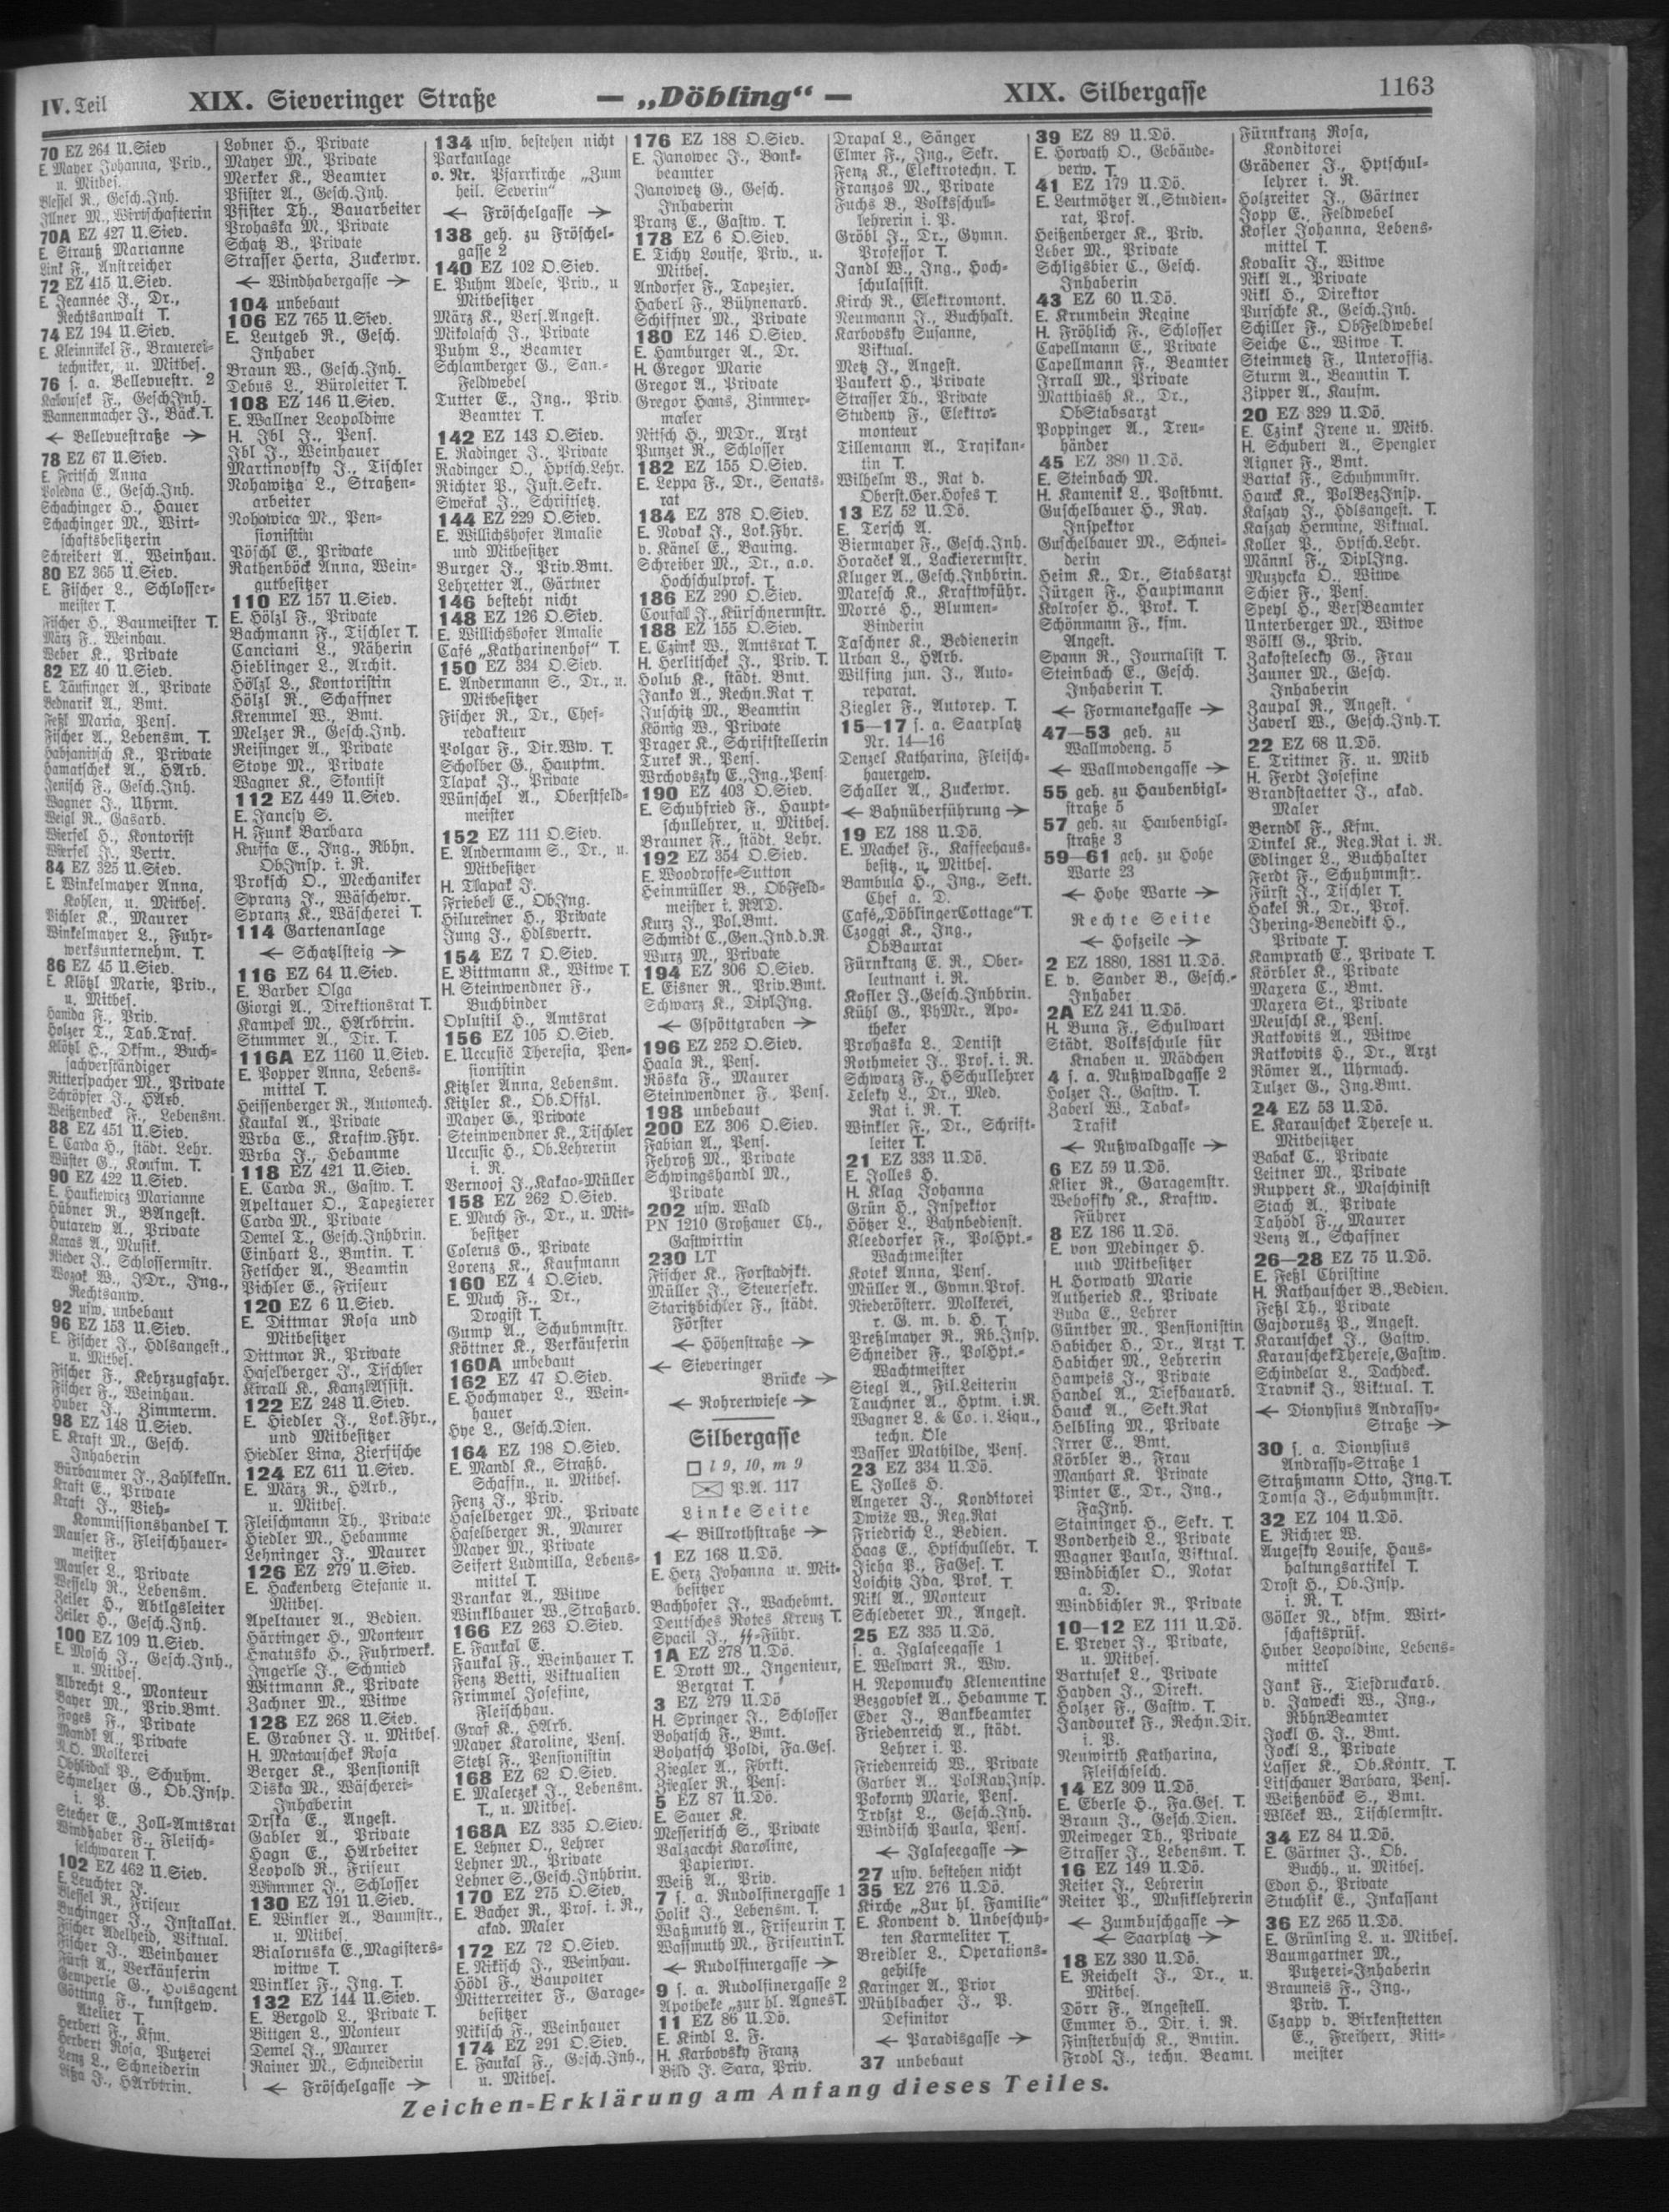 IV. Teil
XIX. Sieveringer Straße
— „Döbling“ —
XIX. Silbergasse
1163
70 EZ 264 U.Siev
E. Mayer Johanna, Priv.,
u. Mitbes.
Blessel R., Gesch.Inh.
Illner M., Wirtschafterin
70A EZ 427 U.Siev.
E. Strauß Marianne
Link F., Anstreicher
72 EZ 415 U.Siev.
E. Jeannée J., Dr.,
Rechtsanwalt T.
74 EZ 194 U.Siev.
E. Kleinnikel F., Brauerei-
techniker, u. Mitbes.
76 s. a. Bellevuestr. 2
Kakousek F., Gesch.Inh.
Wannenmacher J., Bäck.T.
← Bellevuestraße →
78 EZ 67 U.Siev.
E. Fritsch Anna
Poledna E., Gesch.Inh.
Schachinger H., Hauer
Schachinger M., Wirt-
schaftsbesitzerin
Schreibert A., Weinhau.
80 EZ 365 U.Siev.
E. Fischer L., Schlosser-
meister T.
Fischer H., Baumeister T.
März F., Weinhau.
Weber K., Private
82 EZ 40 U.Siev.
E. Täufinger A., Private
Bednarik A., Bmt.
Feßl Maria, Pens.
Fischer A., Lebensm. T.
Habjanitsch K., Private
Hamatschek A., HArb.
Jenisch F., Gesch.Inh.
Wagner J., Uhrm.
Weigl R., Gasarb.
Wiersel H., Kontorist
Wiersel J., Vertr.
84 EZ 325 U.Siev.
E. Winkelmayer Anna,
Kohlen, u. Mitbes.
Pichler K., Maurer
Winkelmayer L., Fuhr-
werksunternehm. T.
86 EZ 45 U.Siev.
E. Klötzl Marie, Priv.,
u. Mitbes.
Hanida F., Priv.
Holzer T., Tab.Traf.
Klötzl H., Dkfm., Buch-
sachverständiger
Ritterspacher M., Private
Schröpfer J., HArb.
Weißenbeck F., Lebensm.
88 EZ 451 U.Siev.
E. Carda H., städt. Lehr.
Wüster G., Kaufm. T.
90 EZ 422 U.Siev.
E. Haukiewicz Marianne
Hübner R., BAngest.
Hutarew A., Private
Karas A., Musik.
Rieder J., Schlossermstr.
Wozak W., JDr., Ing.,
Rechtsanw.
92 usw. unbebaut
96 EZ 153 U.Siev.
E. Fischer J., Hdlsangest.,
u. Mitbes.
Fischer F., Kehrzugfahr.
Fischer F., Weinhau.
Huber J., Zimmerm.
98 EZ 148 U.Siev.
E. Kraft M., Gesch.
Inhaberin
Bürbaumer J., Zahlkelln.
Kraft E., Private
Kraft J., Vieh-
Kommissionshandel T.
Mauser F., Fleischhauer-
meister
Mauser L., Private
Wessely R., Lebensm.
Zeiler H., Abtlgsleiter
Zeiler H., Gesch.Inh.
100 EZ 109 U.Siev.
E. Mosch J., Gesch.Inh.,
u. Mitbes.
Albrecht L., Monteur
Bayer M., Priv.Bmt.
Foges F., Private
Mandl A., Private
N.Ö. Molkerei
Obhlidal P., Schuhm.
Schmelzer G., Ob.Insp.
i. P.
Stecher E., Zoll-Amtsrat
Windhaber F., Fleisch-
selchwaren T.
102 EZ 462 U.Siev.
E. Leuchter J.
Blessel R., Friseur
Buchinger J., Installat.
Fischer Adelheid, Viktual.
Fischer J., Weinhauer
Fürst A., Verkäuferin
Gemperle G., Holsagent
Götting F., kunstgew.
Atelier T.
Herbert F., Kfm.
Herbert Rosa, Putzerei
Lenz L., Schneiderin
Lißa J., HArbtrin.
Lobner H., Private
Mayer M., Private
Merker K., Beamter
Pfister A., Gesch.Inh.
Pfister Th., Bauarbeiter
Prohaska M., Private
Schatz B., Private
Strasser Herta, Zuckerwr.
← Windhabergasse →
104 unbebaut
106 EZ 765 U.Siev.
E. Leutgeb R., Gesch.
Inhaber
Braun W., Gesch.Inh.
Debus L., Büroleiter T.
108 EZ 146 U.Siev.
E. Wallner Leopoldine
H. Ibl J., Pens.
Ibl J., Weinhauer
Martinovsky J., Tischler
Rohawitza L., Straßen-
arbeiter
Nohawica M., Pen-
sionistin
Pöschl E., Private
Rathenböck Anna, Wein-
gutbesitzer
110 EZ 157 U.Siev.
E. Hölzl F., Private
Bachmann F., Tischler T.
Canciani L., Näherin
Hieblinger L., Archit.
Hölzl L., Kontoristin
Hölzl R., Schaffner
Kremmel W., Bmt.
Melzer R., Gesch.Inh.
Reisinger A., Private
Stoye M., Private
Wagner K., Skontist
112 EZ 449 U.Siev.
E. Jancsy S.
H. Funk Barbara
Kuffa E., Ing., Rbhn.
Ob.Insp. i. R.
Proksch O., Mechaniker
Spranz J., Wäschewr.
Spranz K., Wäscherei T.
114 Gartenanlage
← Schatzlsteig →
116 EZ 64 U.Siev.
E. Barber Olga
Giorgi A., Direktionsrat T.
Kampek M., HArbtrin.
Stummer A., Dir. T.
116A EZ 1160 U.Siev.
E. Popper Anna, Lebens-
mittel T.
Heissenberger R., Automech.
Kaukal A., Private
Wrba E., Kraftw.Fhr.
Wrba J., Hebamme
118 EZ 421 U.Siev.
E. Carda R., Gastw. T.
Apeltauer O., Tapezierer
Carda M., Private
Demel T., Gesch.Inhbrin.
Einhart L., Bmtin. T.
Fetischer A., Beamtin
Pichler E., Friseur
120 EZ 6 U.Siev.
E. Dittmar Rosa und
Mitbesitzer
Dittmar R., Private
Haselberger J., Tischler
Kirall K., KanzlAssist.
122 EZ 248 U.Siev.
E. Hiedler J., Lok.Fhr.,
und Mitbesitzer
Hiedler Lina, Zierfische
124 EZ 611 U.Siev.
E. März R., HArb.,
u. Mitbes.
Fleischmann Th., Private
Hiedler M., Hebamme
Lehninger J., Maurer
126 EZ 279 U.Siev.
E. Hackenberg Stefanie u.
Mitbes.
Apeltauer A., Bedien.
Härtinger H., Monteur
Hnatusko H., Fuhrwerk.
Ingerle J., Schmied
Wittmann K., Private
Zachner M., Witwe
128 EZ 268 U.Siev.
E. Grabner J. u. Mitbes.
H. Matauschek Rosa
Berger K., Pensionist
Diska M., Wäscherei-
Inhaberin
Drska E., Angest.
Gabler A., Private
Hagn E., HArbeiter
Leopold R., Friseur
Wimmer J., Schlosser
130 EZ 191 U.Siev.
E. Winkler A., Baumstr.,
u. Mitbes.
Bialoruska E.,Magisters-
witwe T.
Winkler F., Ing. T.
132 EZ 144 U.Siev.
E. Bergold L., Private T.
Bittgen L., Monteur
Demel J., Maurer
Rainer M., Schneiderin
← Fröschelgasse →
134 usw. bestehen nicht
Parkanlage
o. Nr. Pfarrkirche „Zum
heil. Severin“
← Fröschelgasse →
138 geh. zu Fröschel-
gasse 2
140 EZ 102 O.Siev.
E. Puhm Adele, Priv., u
Mitbesitzer
März K., Vers.Angest.
Mikolasch J., Private
Puhm L., Beamter
Schlamberger G., San.-
Feldwebel
Tutter E., Ing., Priv.
Beamter T.
142 EZ 143 O.Siev.
E. Radinger J., Private
Radinger O., Hptsch.Lehr.
Richter P., Just.Sekr.
Sweřak J., Schriftsetz.
144 EZ 229 O.Siev.
E. Willichshofer Amalie
und Mitbesitzer
Burger J., Priv.Bmt.
Lehretter A., Gärtner
146 besteht nicht
148 EZ 126 O.Siev.
E. Willichshofer Amalie
Café „Katharinenhof“ T.
150 EZ 334 O.Siev.
E. Andermann S., Dr., u.
Mitbesitzer
Fischer R., Dr., Chef-
redakteur
Polgar F., Dir.Ww. T.
Scholber G., Hauptm.
Tlapak J., Private
Wünschel A., Oberstfeld-
meister
152 EZ 111 O.Siev.
E. Andermann S., Dr., u.
Mitbesitzer
H. Tlapak J.
Friebel E., ObIng.
Hilureiner H., Private
Jung J., Hdlsvertr.
154 EZ 7 O.Siev.
E. Bittmann K., Witwe T.
H. Steinwendner F.,
Buchbinder
Oplustil H., Amtsrat
156 EZ 105 O.Siev.
E. Uccusic Theresia, Pen-
sionistin
Kitzler Anna, Lebensm.
Kitzler K., Ob.Offzl.
Mayer G., Private
Steinwendner K.,Tischler
Uccusic H., Ob.Lehrerin
i. R.
Vernooj J.,Kakao-Müller
158 EZ 262 O.Siev.
E. Much F., Dr., u. Mit-
besitzer
Colerus G., Private
Lorenz K., Kaufmann
160 EZ 4 O.Siev.
E. Much F., Dr.,
Drogist T.
Gump A., Schuhmmstr.
Köttner K., Verkäuferin
160A unbebaut
162 EZ 47 O.Siev.
E. Hochmayer L., Wein-
hauer
Hye L., Gesch.Dien.
164 EZ 198 O.Siev.
E. Mandl K., Straßb.
Schaffn., u. Mitbes.
Fenz J., Priv.
Haselberger M., Private
Haselberger R., Maurer
Mayer M., Private
Seifert Ludmilla, Lebens-
mittel T.
Vrankar A., Witwe
Winklbauer W.,Straßarb.
166 EZ 263 O.Siev.
E. Faukal E.
Faukal F., Weinhauer T.
Fenz Betti, Viktualien
Frimmel Josefine,
Fleischhau.
Graf K., HArb.
Mayer Karoline, Pens.
Stetzl F., Pensionistin
168 EZ 62 O.Siev.
E. Maleczek J., Lebensm.
T., u. Mitbes.
168A EZ 335 O.Siev.
E. Lehner O., Lehrer
Lehner M., Private
Lehner S.,Gesch.Inhbrin.
170 EZ 275 O.Siev.
E. Bacher R., Prof. i. R.,
akad. Maler
172 EZ 72 O.Siev.
E. Nikisch J., Weinhau.
Hödl F., Baupolier
Mitterreiter F., Garage-
besitzer
Nikisch F., Weinhauer
174 EZ 291 O.Siev.
E. Faukal F., Gesch.Inh.,
u. Mitbes.
176 EZ 188 O.Siev.
E. Janowec J., Bank-
beamter
Janowetz G., Gesch.
Inhaberin
Pranz E., Gastw. T.
178 EZ 6 O.Siev.
E. Tichy Louise, Priv., u.
Mitbes.
Andorfer F., Tapezier.
Haberl F., Bühnenarb.
Schiffner M., Private
180 EZ 146 O.Siev.
E. Hamburger A., Dr.
H. Gregor Marie
Gregor A., Private
Gregor Hans, Zimmer-
maler
Nitsch H., MDr., Arzt
Punzet R., Schlosser
182 EZ 155 O.Siev.
E. Leppa F., Dr., Senats-
rat
184 EZ 378 O.Siev.
E. Novak J., Lok.Fhr.
v. Känel E., Bauing.
Schreiber M., Dr., a.o.
Hochschulprof. T.
186 EZ 290 O.Siev.
Coufall J., Kürschnermstr.
188 EZ 155 O.Siev.
E. Czink W., Amtsrat T.
H. Herlitschek J., Priv. T.
Holub K., städt. Bmt.
Janko A., Rechn.Rat T.
Juschitz M., Beamtin
König W., Private
Prager K., Schriftstellerin
Turek R., Pens.
Wrchovszky E.,Ing.,Pens.
190 EZ 403 O.Siev.
E. Schuhfried F., Haupt-
schullehrer, u. Mitbes.
Brauner F., städt. Lehr.
192 EZ 354 O.Siev.
E. Woodroffe-Sutton
Heinmüller B., ObFeld-
meister i. RAD.
Kurz J., Pol.Bmt.
Schmidt C.,Gen.Ind.d.R.
Wurz M., Private
194 EZ 306 O.Siev.
E. Eisner R., Priv.Bmt.
Schwarz K., DiplIng.
← Gspöttgraben →
196 EZ 252 O.Siev.
Haala R., Pens.
Röska F., Maurer
Steinwendner F., Pens.
198 unbebaut
200 EZ 306 O.Siev.
Fabian A., Pens.
Fehroß M., Private
Schwingshandl M.,
Private
202 usw. Wald
PN 1210 Großauer Ch.,
Gastwirtin
230 LT
Fischer K., Forstadjkt.
Müller J., Steuersekr.
Staritzbichler F., städt.
Förster
← Höhenstraße →
← Sieveringer
Brücke →
← Rohrerwiese →
Silbergasse
□ l 9, 10, m 9
✉ P.A. 117
Linke Seite
← Billrothstraße →
1 EZ 168 U.Dö.
E. Herz Johanna u. Mit-
besitzer
Bachhofer J., Wachebmt.
Deutsches Rotes Kreuz T.
Spacil J., SS-Führ.
1A EZ 278 U.Dö.
E. Drott M., Ingenieur,
Bergrat T.
3 EZ 279 U.Dö
H. Springer J., Schlosser
Bohatsch F., Bmt.
Bohatsch Poldi, Fa.Ges.
Ziegler A., Fbrkt.
Ziegler R., Pens.
5 EZ 87 U.Dö.
E. Sauer K.
Messeritsch S., Private
Valzacchi Karoline,
Papierwr.
Weiß A., Priv.
7 s. a. Rudolfinergasse 1
Holik J., Lebensm. T.
Waßmuth A., Friseurin T.
Wassmuth M., FriseurinT.
← Rudolfinergasse →
9 s. a. Rudolfinergasse 2
Apotheke „zur hl. AgnesT.
11 EZ 86 U.Dö.
E. Kindl L. F.
H. Karbovsky Franz
Bild J. Sara, Priv.
Drapal L., Sänger
Elmer F., Ing., Sekr.
Fenz K., Elektrotechn. T.
Franzos M., Private
Fuchs B., Volksschul-
lehrerin i. P.
Gröbl J., Dr., Gymn.
Professor T.
Jandl W., Ing., Hoch-
schulassist.
Kirch R., Elektromont.
Neumann J., Buchhalt.
Karbovsky Susanne,
Viktual.
Metz J., Angest.
Paukert H., Private
Strasser Th., Private
Studeny F., Elektro-
monteur
Tillemann A., Trafikan-
tin T.
Wilhelm B., Rat d.
Oberst.Ger.Hofes T.
13 EZ 52 U.Dö.
E. Tersch A.
Biermayer F., Gesch.Inh.
Horaček A., Lackierermstr.
Kluger A., Gesch.Inhbrin.
Maresch K., Kraftwführ.
Morré H., Blumen-
Binderin
Taschner K., Bedienerin
Urban L., HArb.
Wilfing jun. J., Auto-
reparat.
Ziegler F., Autorep. T.
15—17 s. a. Saarplatz
Nr. 14—16
Denzel Katharina, Fleisch-
hauergew.
Schaller A., Zuckerwr.
← Bahnüberführung →
19 EZ 188 U.Dö.
E. Machek F., Kaffeehaus-
besitz., u. Mitbes.
Bambula H., Ing., Sekt.
Chef a. D.
Café„DöblingerCottage“T.
Czoggi K., Ing.,
ObBaurat
Fürnkranz E. R., Ober-
leutnant i. R.
Kofler J.,Gesch.Inhbrin.
Kühl G., PhMr., Apo-
theker
Prohaska L., Dentist
Rothmeier J., Prof. i. R.
Schwarz F., HSchullehrer
Teleky L., Dr., Med.
Rat i. R. T.
Winkler F., Dr., Schrift-
leiter T.
21 EZ 333 U.Dö.
E. Jolles H.
H. Klag Johanna
Grün H., Inspektor
Hötzer L., Bahnbedienst.
Kleedorfer F., PolHpt.-
Wachtmeister
Kotek Anna, Pens.
Müller A., Gymn.Prof.
Niederösterr. Molkerei,
r. G. m. b. H. T.
Preßlmayer R., Rb.Insp.
Schneider F., PolHpt.-
Wachtmeister
Siegl A., Fil.Leiterin
Tauchner A., Hptm. i.R.
Wagner L. & Co. i. Liqu.,
techn. Öle
Wasser Mathilde, Pens.
23 EZ 334 U.Dö.
E. Jolles H.
Angerer J., Konditorei
Dwiže W., Reg.Rat
Friedrich L., Bedien.
Haas E., Hptschullehr. T.
Jicha P., FaGes. T.
Loschitz Ida, Prok. T.
Nikl A., Monteur
Schlederer M., Angest.
25 EZ 335 U.Dö.
s. a. Iglaseegasse 1
E. Welwart R., Ww.
H. Nepomucky Klementine
Bezgovsek A., Hebamme T.
Eder J., Bankbeamter
Friedenreich A., städt.
Lehrer i. P.
Friedenreich W., Private
Garber A., PolRayInsp.
Pokorny Marie, Pens.
Trbszt L., Gesch.Inh.
Windisch Paula, Pens.
← Iglaseegasse →
27 usw. bestehen nicht
35 EZ 276 U.Dö.
Kirche „Zur hl. Familie“
E. Konvent d. Unbeschuh-
ten Karmeliter T.
Breidler L., Operations-
gehilfe
Karinger A., Prior
Mühlbacher J., P.
Definitor
← Paradisgasse →
37 unbebaut
39 EZ 89 U.Dö.
E. Horvath O., Gebäude-
verw. T.
41 EZ 179 U.Dö.
E. Leutmötzer A.,Studien-
rat, Prof.
Heißenberger K., Priv.
Leber M., Private
Schligsbier C., Gesch.
Inhaberin
43 EZ 60 U.Dö.
E. Krumbein Regine
H. Fröhlich F., Schlosser
Capellmann E., Private
Capellmann F., Beamter
Irrall M., Private
Matthiash K., Dr.,
ObStabsarzt
Poppinger A., Treu-
händer
45 EZ 380 U.Dö.
E. Steinbach M.
H. Kamenik L., Postbmt.
Guschelbauer H., Ray.
Inspektor
Guschelbauer M., Schnei-
derin
Heim K., Dr., Stabsarzt
Jürgen F., Hauptmann
Kolroser H., Prok. T.
Schönmann F., kfm.
Angest.
Spann R., Journalist T.
Steinbach E., Gesch.
Inhaberin T.
← Formanekgasse →
47—53 geh. zu
Wallmodeng. 5
← Wallmodengasse →
55 geh. zu Haubenbigl-
straße 5
57 geh. zu Haubenbigl-
straße 3
59—61 geh. zu Hohe
Warte 23
← Hohe Warte →
Rechte Seite
← Hofzeile →
2 EZ 1880, 1881 U.Dö.
E. v. Sander B., Gesch.-
Inhaber
2A EZ 241 U.Dö.
H. Buna F., Schulwart
Städt. Volksschule für
Knaben u. Mädchen
4 s. a. Nußwaldgasse 2
Holzer J., Gastw. T.
Zaberl W., Tabak-
Trafik
← Nußwaldgasse →
6 EZ 59 U.Dö.
Klier R., Garagemstr.
Webofsky K., Kraftw.
Führer
8 EZ 186 U.Dö.
E. von Medinger H.
und Mitbesitzer
H. Horwath Marie
Autheried K., Private
Buda E., Lehrer
Günther M., Pensionistin
Habicher H., Dr., Arzt T.
Habicher M., Lehrerin
Hampeis J., Private
Handel A., Tiefbauarb.
Hauck A., Sekt.Rat
Helbling M., Private
Irrer E., Bmt.
Körbler B., Frau
Manhart K. Private
Pinter E., Dr., Ing.,
FaInh.
Staininger H., Sekr. T.
Vonderheid L., Private
Wagner Paula, Viktual.
Windbichler O., Notar
a. D.
Windbichler R., Private
10—12 EZ 111 U.Dö.
E. Preyer J., Private,
u. Mitbes.
Bartusek L., Private
Hayden J., Direkt.
Holzer F., Gastw. T.
Jandourek F., Rechn.Dir.
i. P.
Neuwirth Katharina,
Fleischselch.
14 EZ 309 U.Dö.
E. Eberle H., Fa.Ges. T.
Braun J., Gesch.Dien.
Meiweger Th., Private
Strasser J., Lebensm. T.
16 EZ 149 U.Dö.
Reiter J., Lehrerin
Reiter P., Musiklehrerin
← Zumbuschgasse →
← Saarplatz →
18 EZ 330 U.Dö.
E. Reichelt J., Dr., u.
Mitbes.
Dörr F., Angestell.
Emmer H., Dir. i. R.
Finsterbusch K., Bmtin.
Frodl J., techn. Beamt.
Fürnkranz Rosa,
Konditorei
Grädener J., Hptschul-
lehrer i. R.
Holzreiter J., Gärtner
Jopp E., Feldwebel
Kofler Johanna, Lebens-
mittel T.
Kovalir J., Witwe
Nikl A., Private
Nikl H., Direktor
Purschke K., Gesch.Inh.
Schiller F., ObFeldwebel
Seiche C., Witwe T.
Steinmetz F., Unteroffiz.
Sturm A., Beamtin T.
Zipper A., Kaufm.
20 EZ 329 U.Dö.
E. Czink Irene u. Mitb.
H. Schubert A., Spengler
Aigner F., Bmt.
Bartak F., Schuhmmstr.
Hauck K., PolBezInsp.
Kaszay J., Hdlsangest. T.
Kaszay Hermine, Viktual.
Koller P., Hptsch.Lehr.
Männl F., DiplIng.
Muzycka O., Witwe
Schier F., Pens.
Speyl H., VersBeamter
Unterberger M., Witwe
Völkl G., Priv.
Zakostelecky G., Frau
Zauner M., Gesch.
Inhaberin
Zaupal R., Angest.
Zaverl W., Gesch.Inh.T.
22 EZ 68 U.Dö.
E. Trittner F. u. Mitb
H. Ferdt Josefine
Brandstaetter J., akad.
Maler
Berndl F., Kfm.
Dinkel K., Reg.Rat i. R.
Edlinger L., Buchhalter
Ferdt F., Schuhmmstr.
Fürst J., Tischler T.
Hakel R., Dr., Prof.
Ihering-Benedikt H.,
Private T.
Kamprath E., Private T.
Körbler K., Private
Maxera C., Bmt.
Maxera St., Private
Meuschl K., Pens.
Ratkovits A., Witwe
Ratkovits H., Dr., Arzt
Römer A., Uhrmach.
Tulzer G., Ing.Bmt.
24 EZ 53 U.Dö.
E. Karauschek Therese u.
Mitbesitzer
Babak C., Private
Leitner M., Private
Ruppert K., Maschinist
Stach A., Private
Tahödl F., Maurer
Benz A., Schaffner
26—28 EZ 75 U.Dö.
E. Feßl Christine
H. Rathauscher B.,Bedien.
Feßl Th., Private
Gajdorusz P., Angest.
Karauschek J., Gastw.
KarauschekTherese,Gastw.
Schindelar L., Dachdeck.
Travnik J., Viktual. T.
← Dionysius Andrassy-
Straße →
30 s. a. Dionysius
Andrassy-Straße 1
Straßmann Otto, Ing.T.
Tomsa J., Schuhmmstr.
32 EZ 104 U.Dö.
E. Richter W.
Augesky Louise, Haus-
haltungsartikel T.
Drost H., Ob.Insp.
i. R. T.
Göller N., dkfm. Wirt-
schaftsprüf.
Huber Leopoldine, Lebens-
mittel
Jank F., Tiefdruckarb.
v. Jawecki W., Ing.,
RbhnBeamter
Jockl G. J., Bmt.
Jockl L., Private
Lasser K., Ob.Kontr. T.
Litschauer Barbara, Pens.
Weißenböck S., Bmt.
Wlček W., Tischlermstr.
34 EZ 84 U.Dö.
E. Gärtner J., Ob.
Buchh., u. Mitbes.
Edon H., Private
Stuchlik E., Inkassant
36 EZ 265 U.Dö.
E. Grünling L. u. Mitbes.
Baumgartner M.,
Putzerei-Inhaberin
Brauneis F., Ing.,
Priv. T.
Czapp v. Birkenstetten
E., Freiherr, Ritt-
meister
Zeichen-Erklärung am Anfang dieses Teiles.